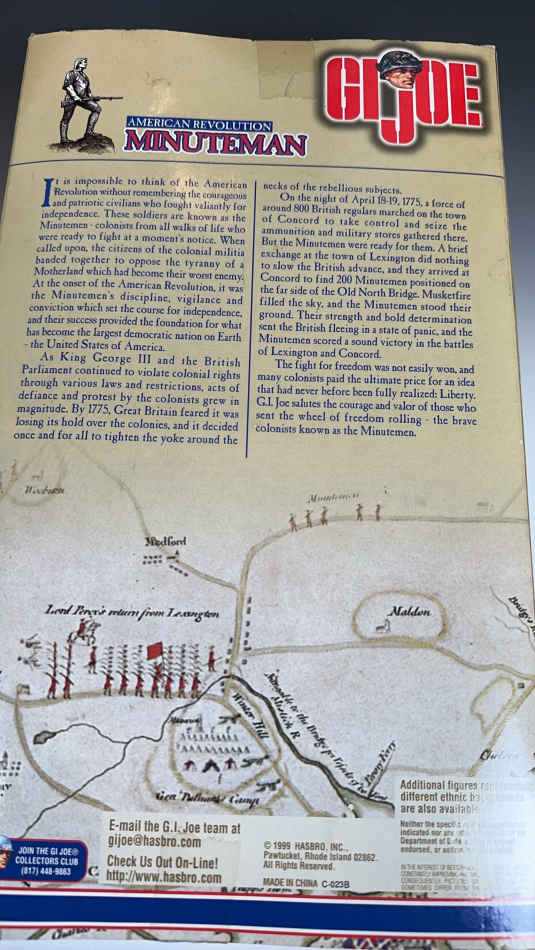 GI JOE
AMERICAN REVOLUTION
MINUTEMAN
It is impossible to think of the American
Revolution without remembering the courageous
and patriotic civilians who fought valiantly for
independence. These soldiers are known as the
Minutemen - colonists from all walks of life who
were ready to fight at a moment's notice. When
called upon, the citizens of the colonial militia
banded together to oppose the tyranny of a
Motherland which had become their worst enemy.
At the onset of the American Revolution, it was
the Minutemen's discipline, vigilance and
conviction which set the course for independence,
and their success provided the foundation for what
has become the largest democratic nation on Earth
- the United States of America.
As King George III and the British
Parliament continued to violate colonial rights
through various laws and restrictions, acts of
defiance and protest by the colonists grew in
magnitude. By 1775, Great Britain feared it was
losing its hold over the colonies, and it decided
once and for all to tighten the yoke around the
necks of the rebellious subjects.
On the night of April 18-19, 1775, a force of
around 800 British regulars marched on the town
of Concord to take control and seize the
ammunition and military stores gathered there.
But the Minutemen were ready for them. A brief
exchange at the town of Lexington did nothing
to slow the British advance, and they arrived at
Concord to find 200 Minutemen positioned on
the far side of the Old North Bridge. Musketfire
filled the sky, and the Minutemen stood their
ground. Their strength and bold determination
sent the British fleeing in a state of panic, and the
Minutemen scored a sound victory in the battles
of Lexington and Concord.
The fight for freedom was not easily won, and
many colonists paid the ultimate price for an idea
that had never before been fully realized: Liberty.
G.I. Joe salutes the courage and valor of those who
sent the wheel of freedom rolling - the brave
colonists known as the Minutemen.
Minutemen
Medford
Lord Percy's return from Lexington
Maldon
Winter Hill
Mistick R.
Penny Ferry
Gen. Putnam's Camp
Additional figures
different ethnic
are also available
Neither the
indicated nor
Department of
endorsed, or
E-mail the G.I. Joe team at
gijoe@hasbro.com
Check Us Out On-Line!
http://www.hasbro.com
© 1999 HASBRO, INC.,
Pawtucket, Rhode Island 02862.
All Rights Reserved.
MADE IN CHINA C-023B
JOIN THE GI JOE®
COLLECTORS CLUB
(817) 448-9863